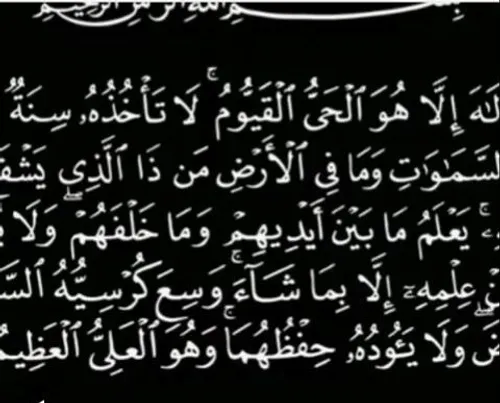 إِلَّا هُوَ ٱلْحَىُّ ٱلْقَيُّومُ ۚ لَا تَأْخُذُهُۥ سِنَةٌ
وَمَا فِى ٱلْأَرْضِ مَن ذَا ٱلَّذِى
يَعْلَمُ مَا بَيْنَ أَيْدِيهِمْ وَمَا خَلْفَهُمْ وَلَا
عِلْمِهِۦٓ إِلَّا بِمَا شَآءَ ۚ وَسِعَ كُرْسِيُّهُ
وَلَا يَـُٔودُهُۥ حِفْظُهُمَا ۚ وَهُوَ ٱلْعَلِىُّ